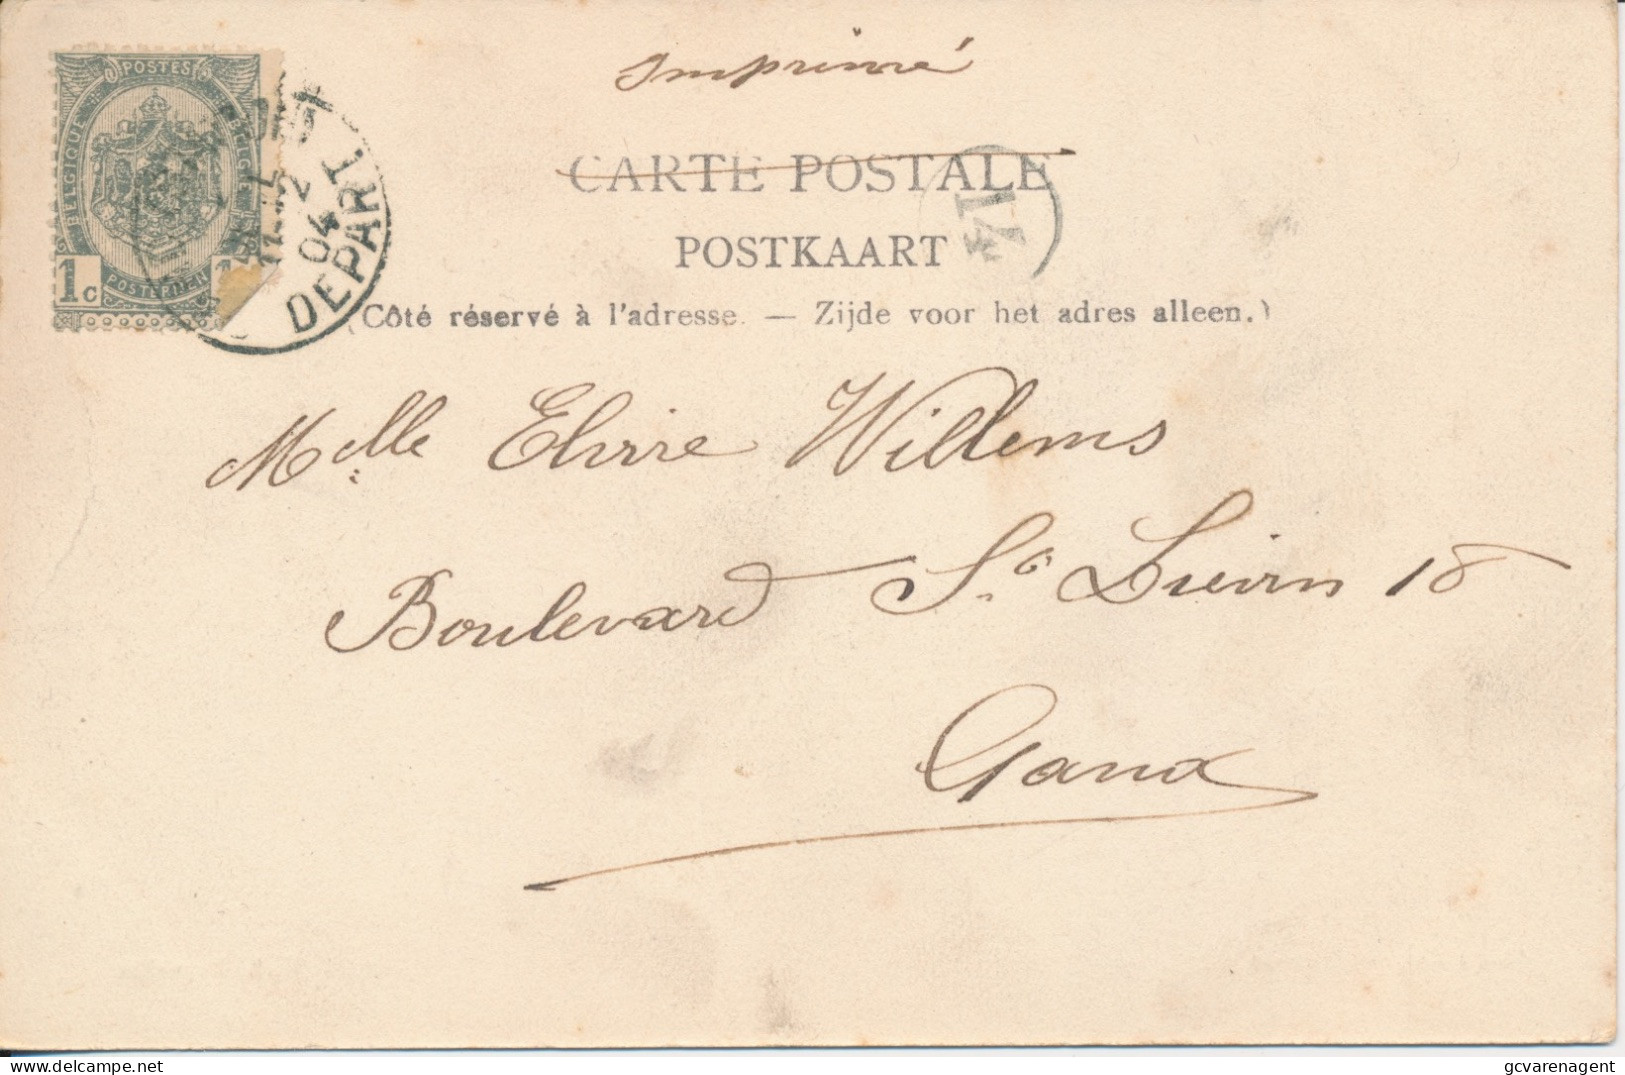 Imprimé
POSTES
BELGIQUE
BELGIE
1c
POSTERIJEN
2
04
DEPART
CARTE POSTALE
14
POSTKAART
(Côté réservé à l'adresse. — Zijde voor het adres alleen.)
Melle Elvire Willems
Boulevard St. Liévin 18
Gand
gcvarenagent